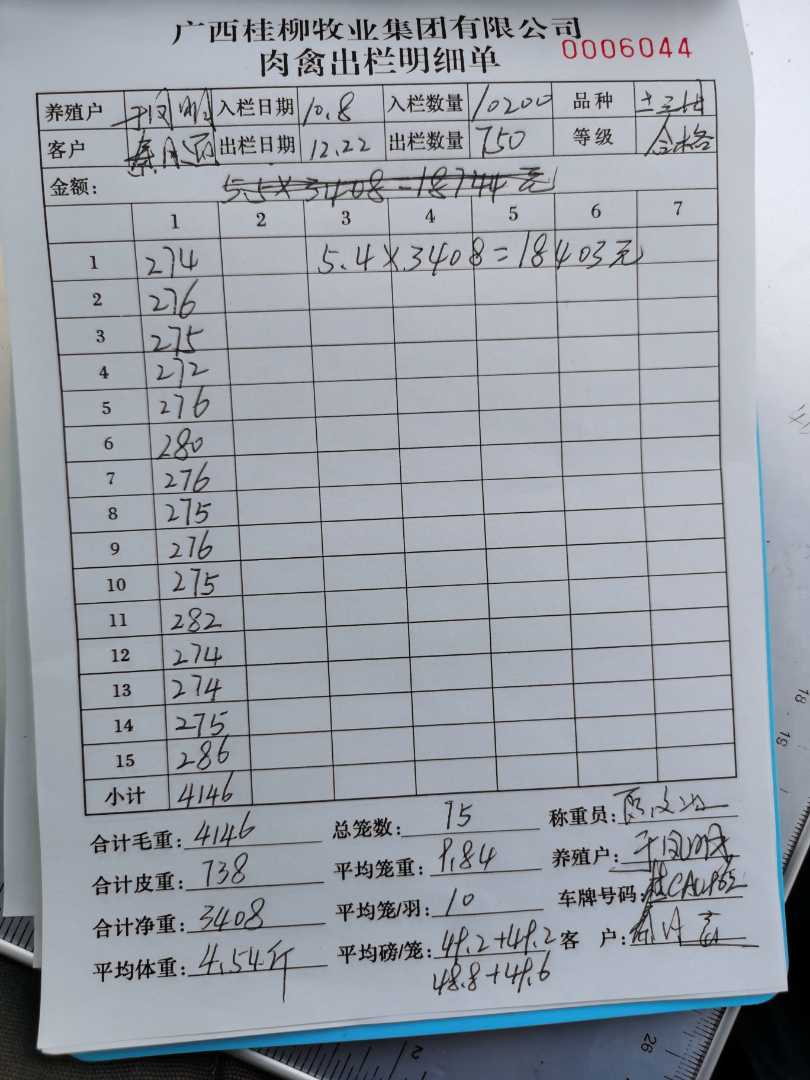 广西桂柳牧业集团有限公司
肉禽出栏明细单 0006044
养殖户 入栏日期 10.8 入栏数量 10200 品种
客户 出栏日期 12.22 出栏数量 750 等级 合格
金额: 5.5×3408=18744元
1 2 3 4 5 6 7
1 274 5.4×3408=18403元
2 276
3 275
4 272
5 276
6 280
7 276
8 275
9 276
10 275
11 282
12 274
13 274
14 275
15 286
小计 4146
合计毛重: 4146 总笼数: 75 称重员:
合计皮重: 738 平均笼重: 9.84 养殖户:
合计净重: 3408 平均笼/羽: 10 车牌号码:
平均体重: 4.54斤 平均磅/笼: 49.2+49.2 客 户:
48.8+49.6